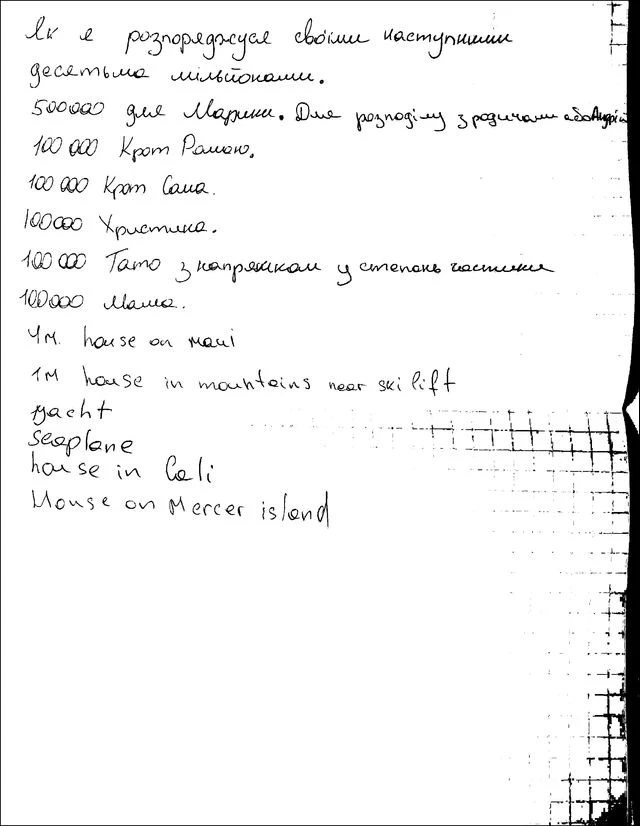 Як я розпоряджуся своїми наступними
десятьма мільйонами.
500000 для Марини. Для розподілу з родичами або Андрій
100 000 Крот Рамаю.
100 000 Крот Саша.
100000 Христина.
100 000 Тато з напрямком у степень частики
100000 Мама.
4м. house on Maui
1М house in mountains near ski lift
yacht
seaplane
house in Cali
House on Mercer island